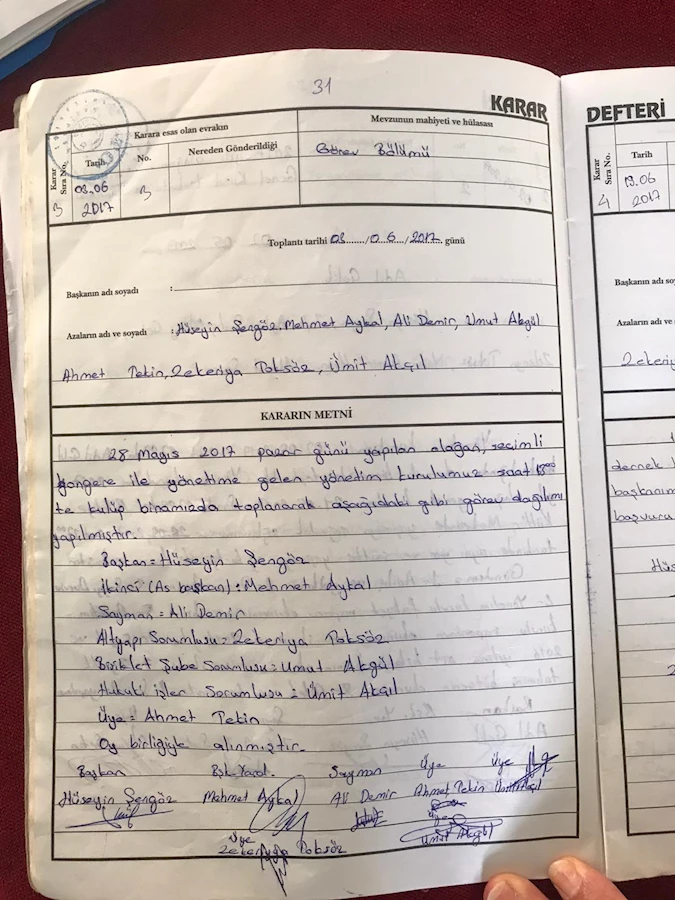 31
KARAR
Karar Sıra No.
Karara esas olan evrakın
Mevzunun mahiyeti ve hülasası
Tarih
No.
Nereden Gönderildiği
Görev Bölümü
3
03.06
2017
3
Toplantı tarihi 03 /06/2017 günü
Başkanın adı soyadı :
Azaların adı ve soyadı : Hüseyin Şengöz, Mehmet Aykal, Ali Demir, Umut Akgül
Ahmet Tekin, Zekeriya Toksöz, Ümit Akçıl
KARARIN METNİ
28 Mayıs 2017 pazar günü yapılan olağan, seçimli
kongere ile yönetime gelen yönetim kurulumuz saat
te kulüp binamızda toplanarak aşağıdaki gibi görev dağılımı
yapılmıştır.
Başkan = Hüseyin Şengöz
İkinci (As başkan) : Mehmet Aykal
Sayman = Ali Demir
Altyapı Sorumlusu = Zekeriya Toksöz
Bisiklet Şube Sorumlusu = Umut Akgül
Hukuki işler Sorumlusu = Ümit Akçıl
Üye = Ahmet Tekin
Oy birliğiyle alınmıştır.
Başkan Bşk. Yard. Sayman Üye Üye
Hüseyin Şengöz Mehmet Aykal Ali Demir Ahmet Tekin
Üye
Üye
Zekeriya Toksöz
DEFTERİ
Karar Sıra No.
Tarih
4
13.06
2017
Başkanın adı soy
Azaların adı ve
Zekeriy
dernek
başkanım
başvuru
Hüs